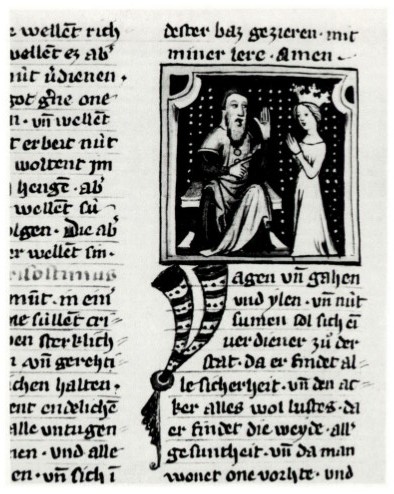 e wellent rich
wellent ez ab'
nút v̓dienen ·
got gͤne one
en · vn̄ wellēt
t erbeit nút
woltent jm
hengē · ab'
wellēt sù
olgen · Die ab'
er wellēt sin ·
mút · in ein
me súllēt cri
ben sterklich
vn̄ gerehti
chen halten ·
ent endelichē
alle vntugen
nen · vnd alle
en · vn̄ sich i
dester baz gezieren · mit
miner lere · Amen ·
Iagen vn̄ gahen
vnd ylen · vn̄ nút
sumen sol sich ei
uer diener zů der
stat · da er findet al
le sicherheit · vn̄ den ac
ker alles wol lustes · da
er findet die weyde · all'
gesuntheit · vn̄ da man
wonet one vorhte · vnd